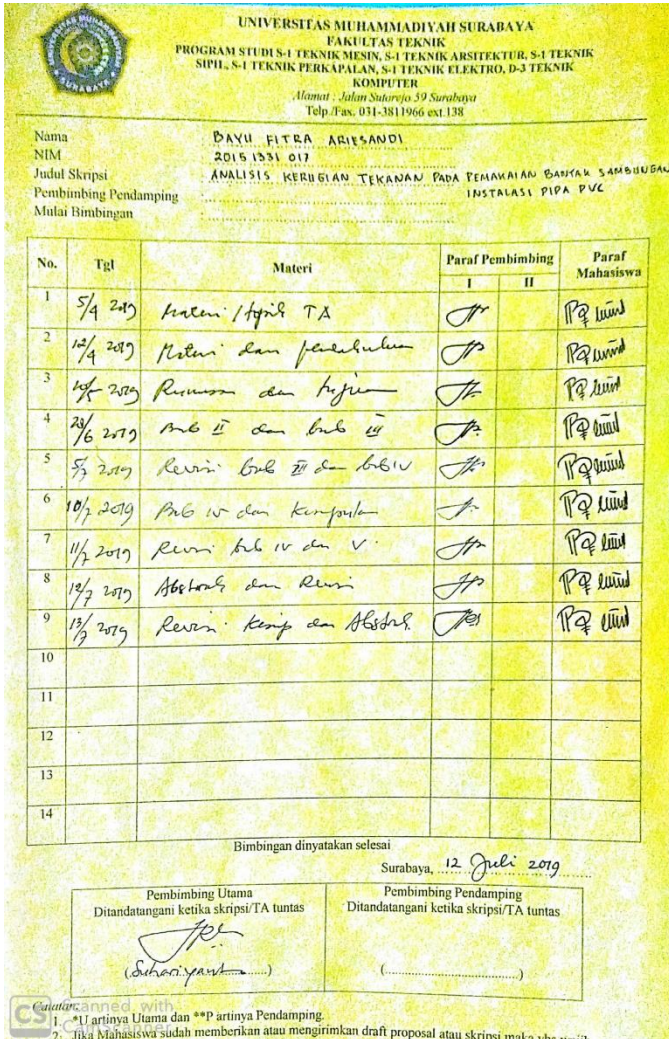 UNIVERSITAS MUHAMMADIYAH SURABAYA
FAKULTAS TEKNIK
PROGRAM STUDI S-1 TEKNIK MESIN, S-1 TEKNIK ARSITEKTUR, S-1 TEKNIK
SIPIL, S-1 TEKNIK PERKAPALAN, S-1 TEKNIK ELEKTRO, D-3 TEKNIK
KOMPUTER
Alamat : Jalan Sutorejo 59 Surabaya
Telp./Fax. 031-3811966 ext.138
Nama BAYU FITRA ARIESANDI
NIM 2015 1331 017
Judul Skripsi ANALISIS KERUGIAN TEKANAN PADA PEMAKAIAN BANYAK SAMBUNGAN
Pembimbing Pendamping INSTALASI PIPA PVC
Mulai Bimbingan
No. Tgl Materi Paraf Pembimbing Paraf Mahasiswa
I II
1 5/4 2019 Materi / TA
2 12/4 2019 Materi dan pendahuluan
3 2019 Rumusan dan tujuan
4 2019 Bab II dan bab III
5 5/7 2019 Revisi bab III dan bab IV
6 10/7 2019 Bab IV dan Kesimpulan
7 11/7 2019 Revisi bab IV dan V
8 12/7 2019 Abstrak dan Revisi
9 13/7 2019 Revisi Kesimp dan Abstrak
10
11
12
13
14
Bimbingan dinyatakan selesai
Surabaya, 12 Juli 2019
Pembimbing Utama Pembimbing Pendamping
Ditandatangani ketika skripsi/TA tuntas Ditandatangani ketika skripsi/TA tuntas
(Suhariyanto) ( )
Catatan:
1. *U artinya Utama dan **P artinya Pendamping.
2. Jika Mahasiswa sudah memberikan atau mengirimkan draft proposal atau skripsi maka
CS Scanned with
CamScanner